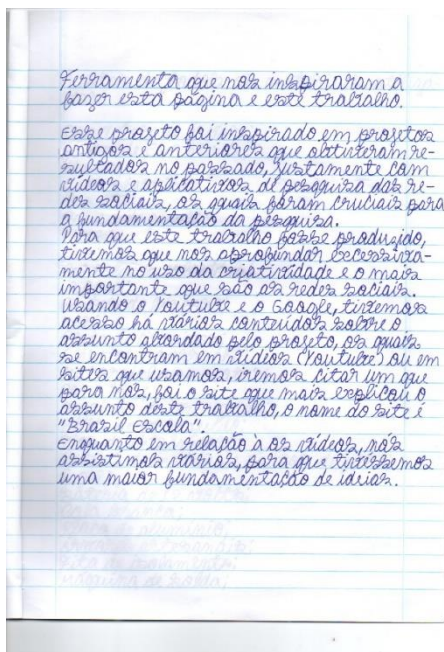 Ferramenta que nos inspiraram a
fazer esta página e este trabalho.
Esse projeto foi inspirado em projetos
antigos e anteriores que obtiveram re-
sultados no passado, justamente com
vídeos e aplicativos de pesquisa das re-
des sociais, os quais foram cruciais para
a fundamentação da pesquisa.
Para que este trabalho fosse produzido,
tivemos que nos aprofundar excessiva-
mente no uso da criatividade e o mais
importante que são as redes sociais.
Usando o Youtube e o Google, tivemos
acesso há vários conteúdos sobre o
assunto abordado pelo projeto, os quais
se encontram em vídios (Youtube) ou em
sites que usamos, iremos citar um que
para nós, foi o site que mais explicou o
assunto deste trabalho, o nome do site é
"Brasil Escola".
Enquanto em relação à os vídeos, nós
assistimos vários, para que tivessemos
uma maior fundamentação de ideias.